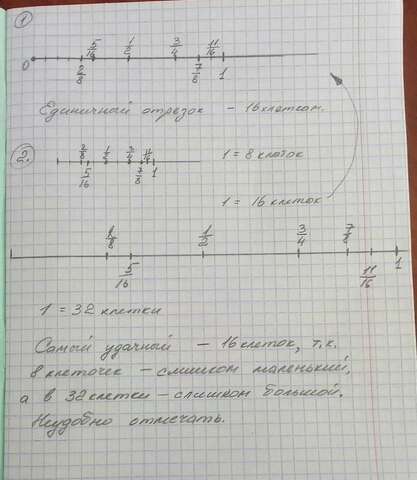 1
5/16 1/2 3/4 11/16
0 2/8 7/8 1
Единичный отрезок - 16 клеток.
2. 2/8 1/2 3/4 11/16 1 = 8 клеток
5/16 7/8 1
1 = 16 клеток
1/2 3/4 7/8
5/16 11/16 1
1 = 32 клетки
Самый удачный - 16 клеток, т.к.
8 клеточек - слишком маленький,
а в 32 клетки - слишком большой.
Неудобно отмечать.